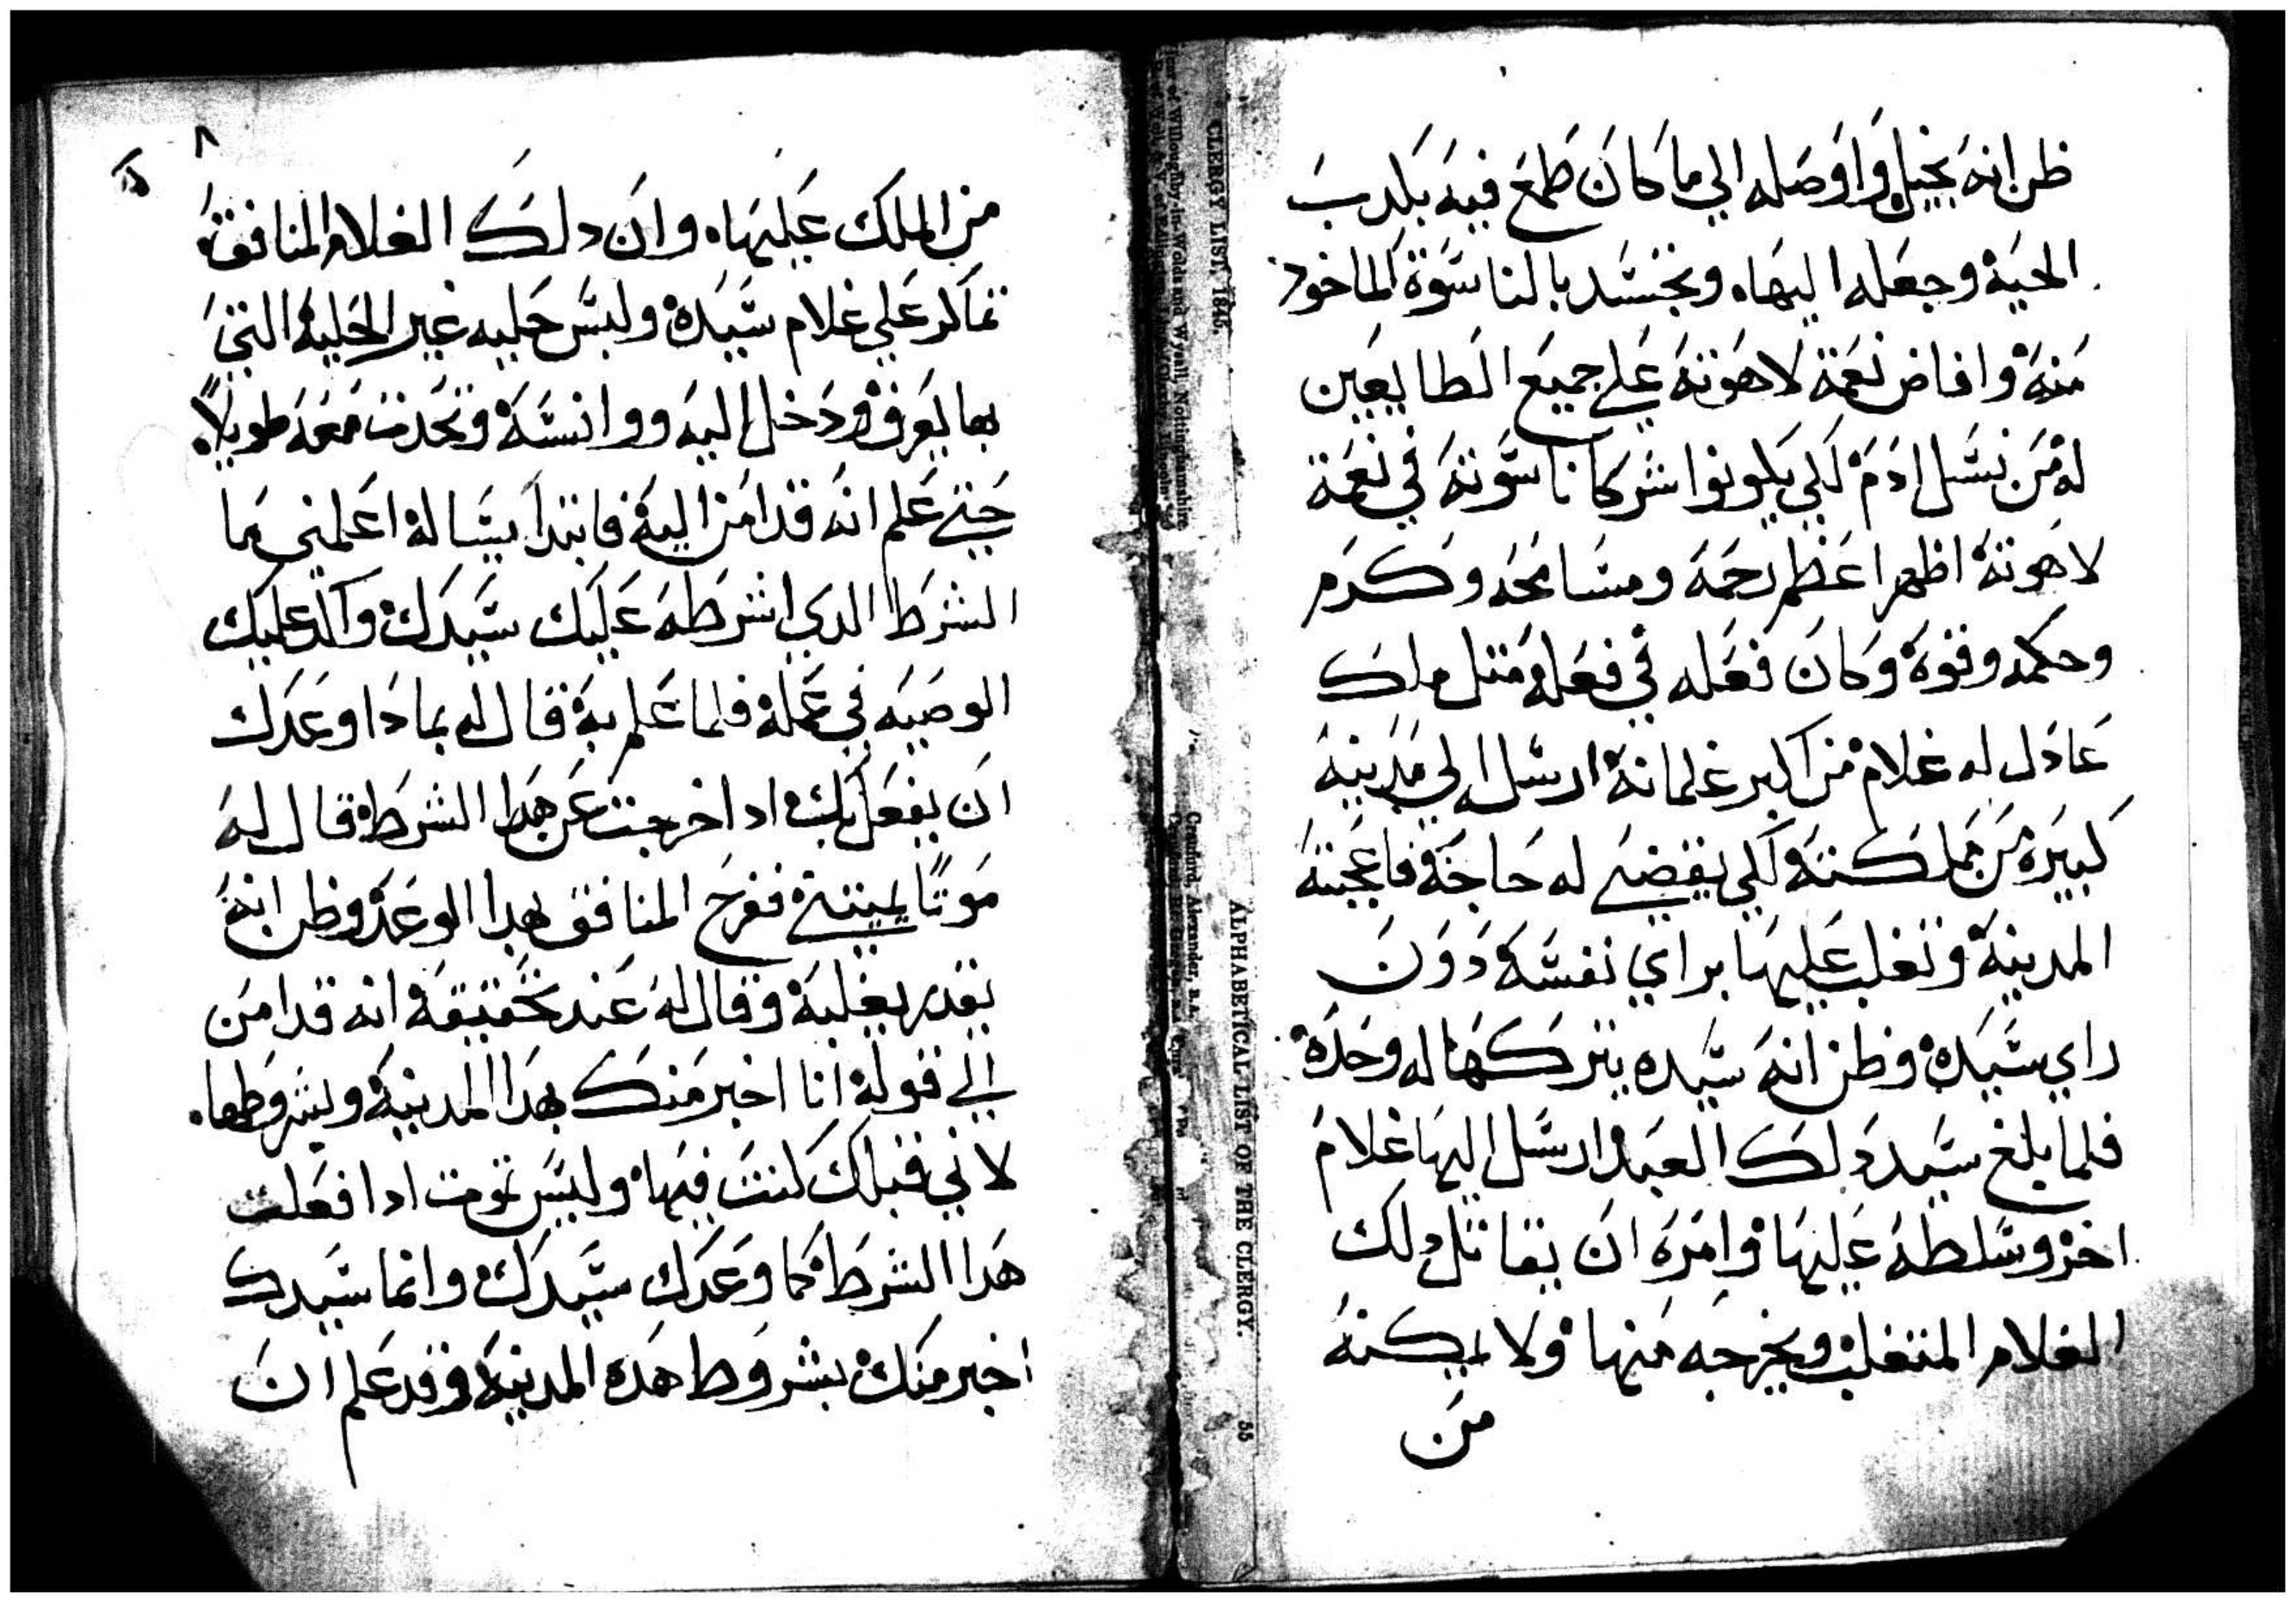 ظن انه بخيل واوصله الي ما كان طمع فيه بكدب
الحيه وجعله اليها ٠ وتجسد بالناسوة الماخود
منه وافاض نعمة لاهوته علي جميع الطايعين
له من نسل ادم لكي يكونوا شركا ناسوته في نعمة
لاهوته اظهر اعظم رحمه ومسامحه وكرم
وحكمه وقوه وكان فعله في فعله متل ملك
عادل له غلام من اكبر غلمانه ارسله الي مدينه
كبيره من مملكته لكي يقضي له حاجة فاعجبته
المدينه وتغلب عليها براي نفسه دون
راي سيده وظن انه سيده يتركها له وحده
فلما بلغ سيد دلك العبد ارسل اليها غلام
اخر وسلطه عليها وامره ان يقاتل دلك
الغلام المتغلب ويخرجه منها ولا يمكنه
من
٨
من الملك عليها ٠ وان دلك الغلام المنافق
تماكر علي غلام سيده ولبس حليه غير الحليه التي
بها يعرف ودخل اليه ووانسه وتحدت معه طويلاً
حتي علم انه قد امن اليه فابتدا يساله اعلمني ما
الشرط الدي اشرطه عليك سيدك واكد عليك
الوصيه في عمله فلما علم به قال له بما دا وعدك
ان يفعل بك ادا خرجت عن هدا الشرط قال له
موتًا يميتني ففرح المنافق بهدا الوعد وظن انه
يقدر يغلبه وقال له عند تحقيقه انه قد امن
الي قوله انا اخبر منك بهدا المدينه وبشروطها ٠
لاني قبلك كنت فيها وليس تموت ادا فعلت
هدا الشرط كما وعدك سيدك وانما سيدك
اخبر منك بشروط هده المدينه وقد علم ان
CLERGY LIST, 1845.
ALPHABETICAL LIST OF THE CLERGY.
55
Cranford, Alexander, B.A.